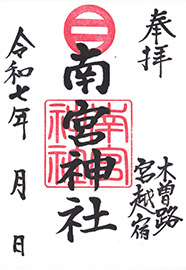 奉拝
木曽路
宮越宿
南宮神社
令和七年 月 日